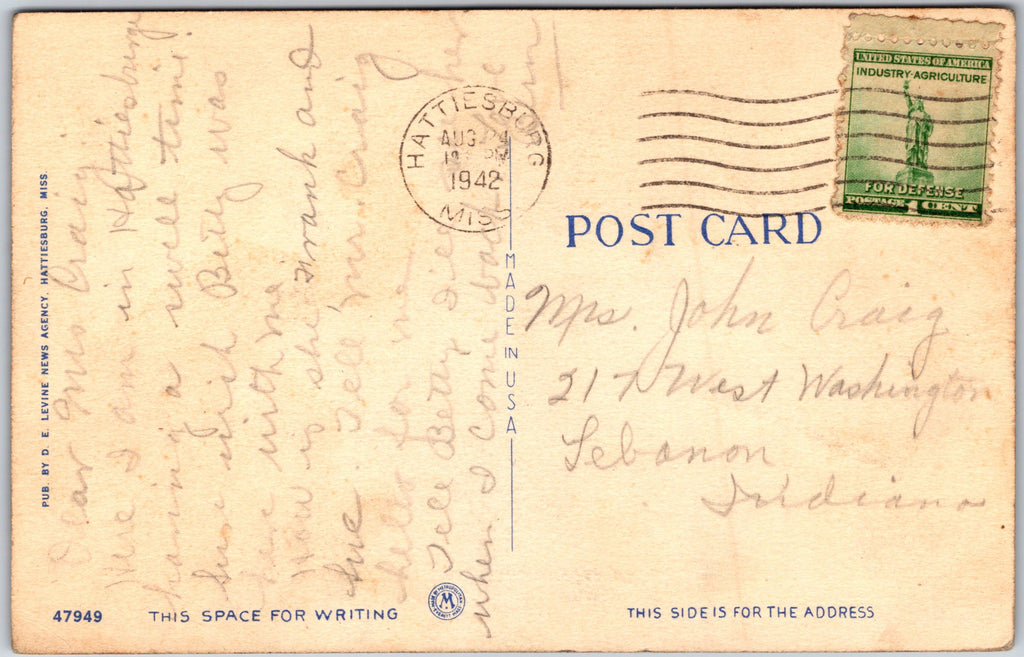 Dear Mrs Craig,
Here I am in Hattiesburg
having a swell time.
Sure wish Betty was
here with me.
How is she Frank and
Sue. Tell Mr. Craig
hello for me.
Tell Betty I'll
when I come back
PUB. BY D. E. LEVINE NEWS AGENCY, HATTIESBURG, MISS.
47949
THIS SPACE FOR WRITING
MADE IN USA
HATTIESBURG
AUG 24
PM
1942
MISS
UNITED STATES OF AMERICA
INDUSTRY·AGRICULTURE
FOR DEFENSE
POSTAGE 1 CENT
POST CARD
Mrs. John Craig
217 West Washington
Lebanon
Indiana
THIS SIDE IS FOR THE ADDRESS